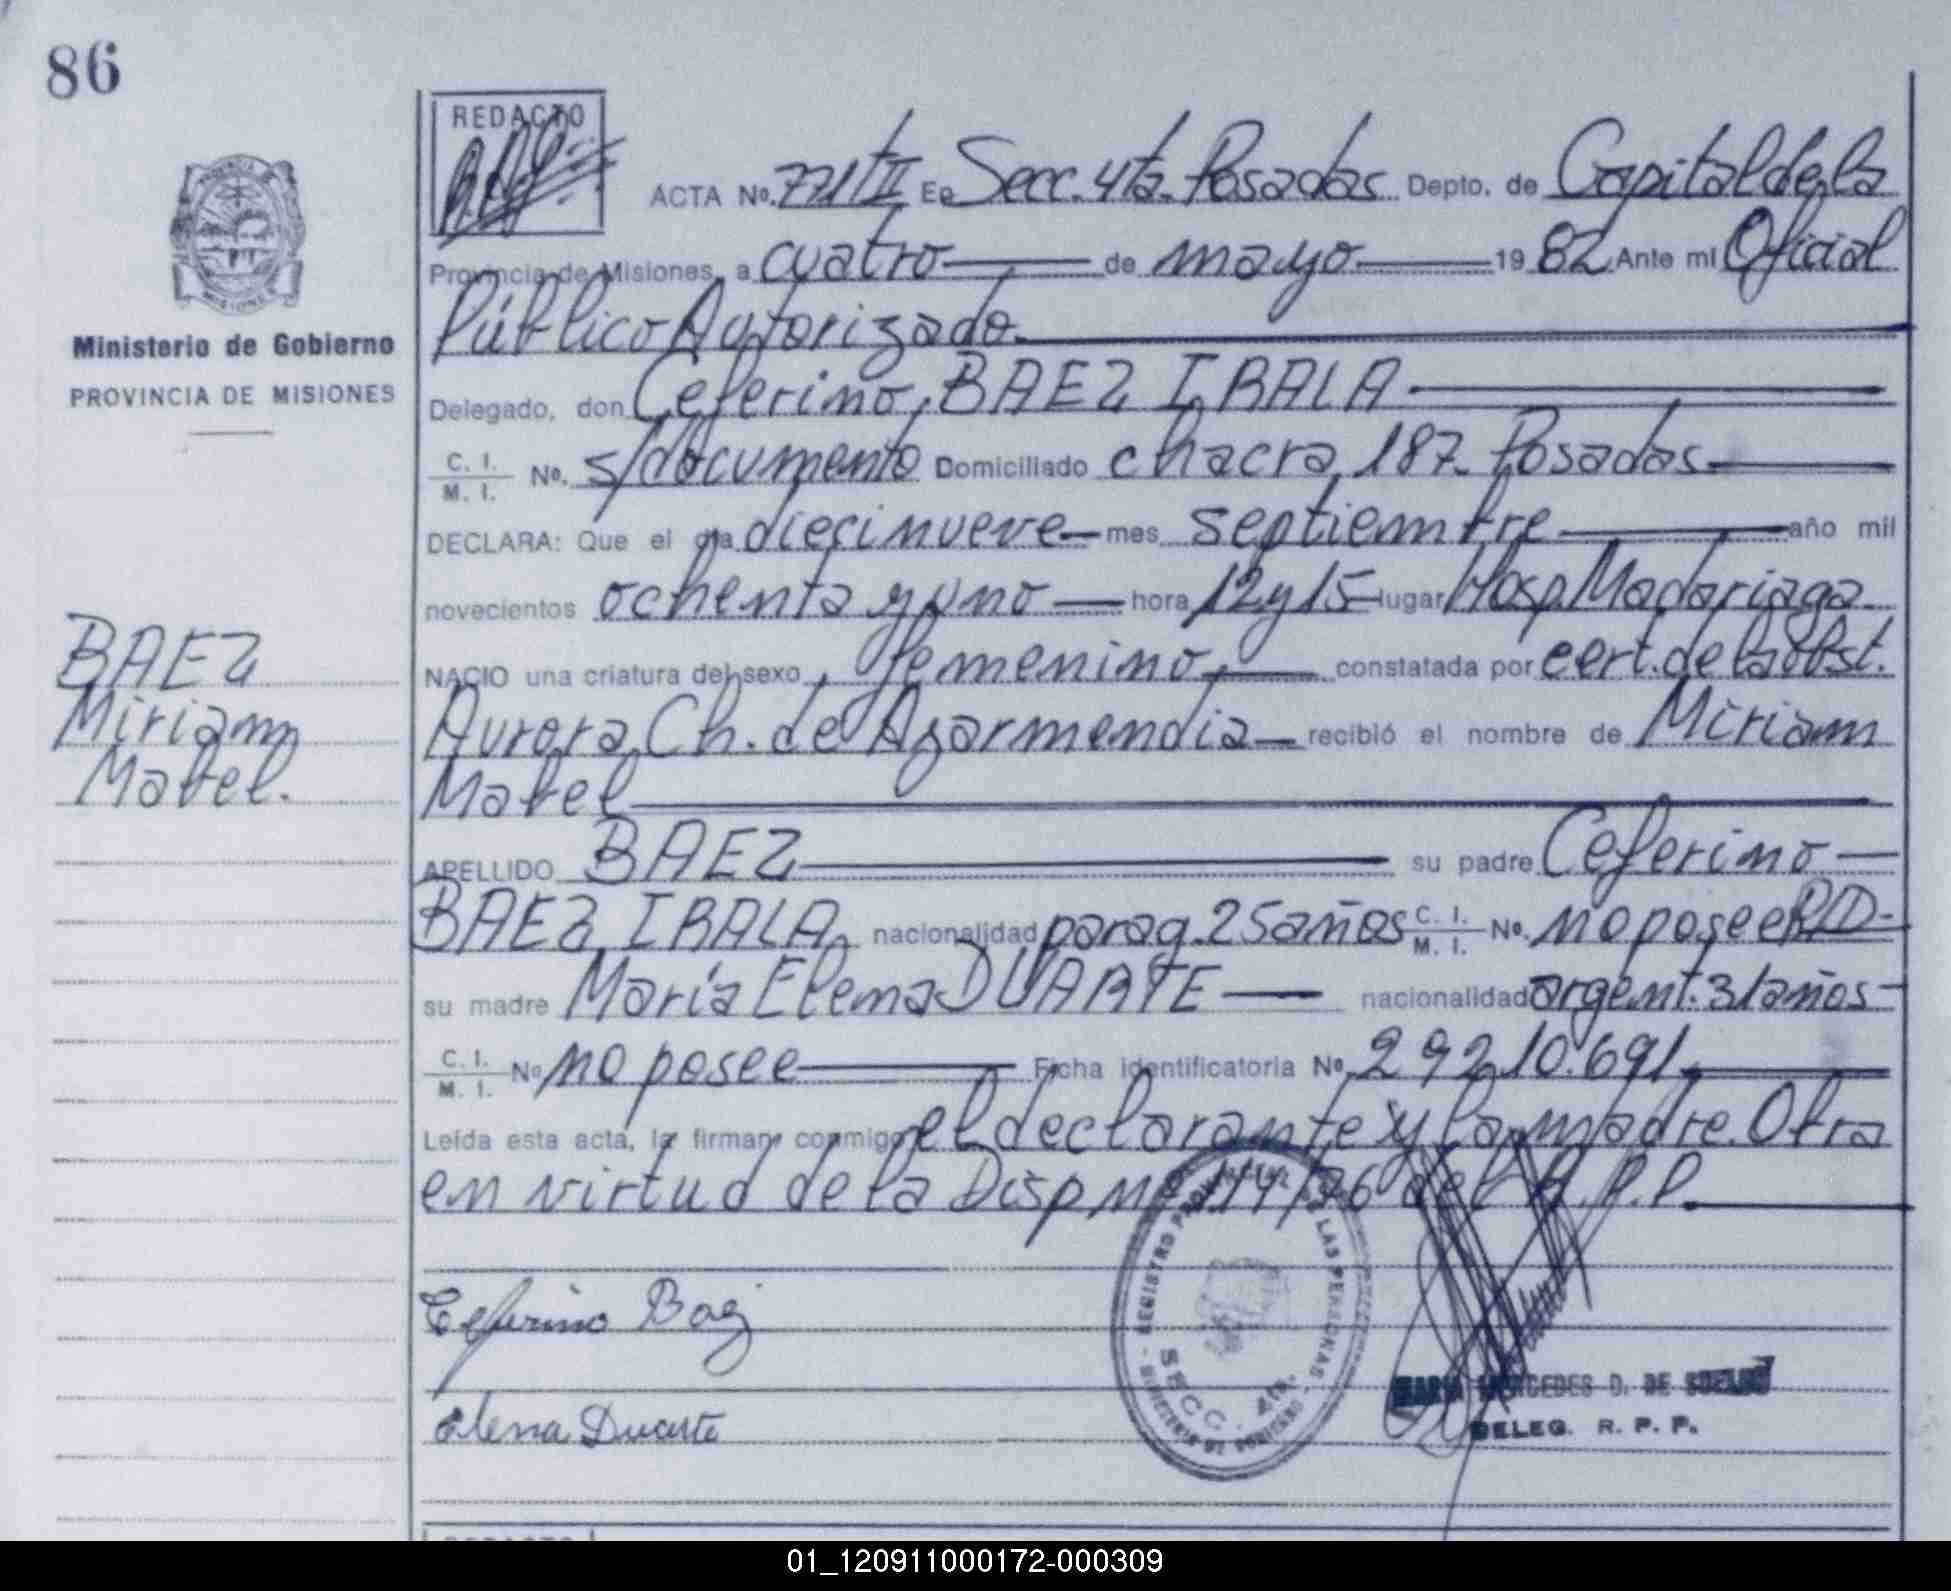 86
REDACTO
ACTA No. 771/II En Secc. 4ta. Posadas Depto. de Capital de la
Provincia de Misiones, a cuatro de mayo 1982 Ante mí Oficial
Público Autorizado.
Ministerio de Gobierno
PROVINCIA DE MISIONES
Delegado, don Ceferino, BAEZ IBALA
C. I. M. I. No. s/documento Domiciliado chacra 187. Posadas
DECLARA: Que el día diecinueve mes septiembre año mil
novecientos ochenta y uno hora 12 y 15 lugar Hosp. Madariaga.
NACIO una criatura del sexo femenino, constatada por cert. de la obst.
Aurora Ch. de Azarmendia recibió el nombre de Miriam
Mabel
BAEZ
Miriam
Mabel.
APELLIDO BAEZ su padre Ceferino
BAEZ IBALA, nacionalidad parag. 25 años C. I. M. I. No. no posee
su madre María Elena DUARTE nacionalidad argent. 31 años
C. I. M. I. No no posee Ficha identificatoria No. 29210.691
Leída esta acta, la firman conmigo el declarante y la madre. Obra
en virtud de la Disp nº 14/76 del R.P.P.
Ceferino Baez
Elena Duarte
REGISTRO PROVINCIAL DE LAS PERSONAS
SECC. 4ta.
MINISTERIO DE GOBIERNO
MARIA MERCEDES D. DE
DELEG. R. P. P.
REDACTO
01_120911000172-000309